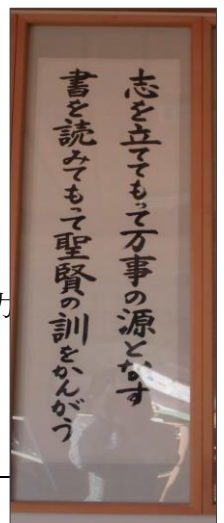 志を立ててもって万事の源となす
書を読みてもって聖賢の訓をかんがう